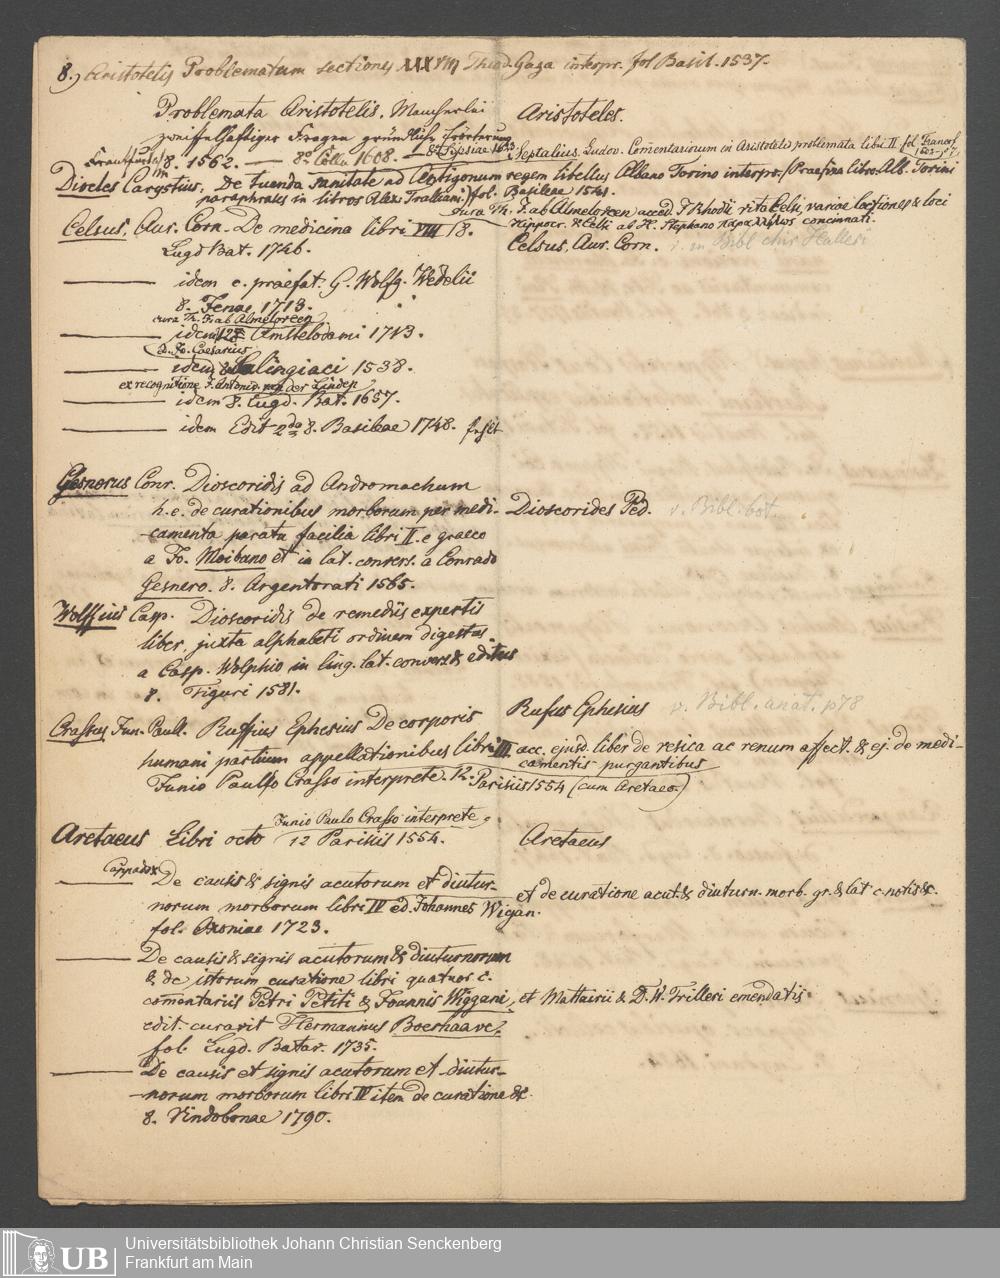 8.) Aristotelis Problematum sectiones XXXVIII Theod. Gaza interpr. fol Basil. 1537.
Problemata Aristotelis. Mancherlei
zweiffelhafftiger Fragen gründliche Erörterung
Frankfurt a/m 8. 1562. — 8° Cölln 1608. — 8° Lipsiae 1623
Aristoteles.
Septalius, Ludov. Comentarionum in Aristotelis problemata libri II fol Francof. 1602-7.
Diocles Carystius, De tuenda sanitate ad Antigonum regem libellus Albano Torino interpr. (Praefixa libro Alb. Torini
paraphrases in libros Alex. Tralliani) fol. Basileae 1541.
cura Th. F. ab Almeloveen acced. F Rhodii vita Celsi variae lectiones & loci
Hippocr. & Celsi ab H. Stephano παραλληλως concinnati.
Celsus, Aur. Corn. De medicina libri VIII 8.
Lugd Bat. 1746.
Celsus, Aur. Corn. v. in Bibl chir Halleri
— idem c. praefat. G. Wolfg. Wedelii
8. Jenae 1713.
cura Th. F. ab Almeloveen
— idem 12° Amstelodami 1713.
ed. Jo. Caesarius
— idem 8. Salingiaci 1538.
ex recognitione J. Antonid. van der Linden
— idem 8. Lugd. Bat. 1657.
— idem Edit 2da 8. Basileae 1748.
Gesnerus Conr. Dioscoridis ad Andromachum
h. e. de curationibus morborum per medi-
camenta paratu facilia libri II. e graeco
a Jo. Moibano et in lat. convers. a Conrado
Gesnero. 8. Argentorati 1565.
Dioscorides Ped. v. Bibl. bot
Wolffius Casp. Dioscoridis de remediis expertis
liber, juxta alphabeti ordinem digestus.
a Casp. Wolphio in ling. lat. convers & editus
8. Tiguri 1581.
Rufus Ephesius v. Bibl. anat. p78
Crassus Jun. Paull. Ruffius Ephesius De corporis
humani partium appellationibus libri III acc. ejusd. liber de vesica ac renum affect. & ej. de medi-
camentis purgantibus
Junio Paullo Crasso interprete. 12. Parisiis 1554 (cum Aretaeo)
Junio Paulo Crasso interprete.
Aretaeus Libri octo 12 Parisiis 1554.
Aretaeus
Cappadox
— De causis & signis acutorum et diutur-
norum morborum libri IV ed. Johannes Wigan.
fol. Oxoniae 1723.
et de curatione acut. & diuturn. morb. gr. & lat c. notis &c.
— De causis & signis acutorum & diuturnorum
& de istorum curatione libri quatuor c.
comentariis Petri Petiti & Joannis Wiggani, et Mattairii & D. W. Trilleri emendatis
edit. curavit Hermannus Boerhaave.
fol. Lugd. Batav. 1735.
— De causis et signis acutorum et diutur-
norum morborum libri IV item de curatione &c.
8. Vindobonae 1790.
UB
Universitätsbibliothek Johann Christian Senckenberg
Frankfurt am Main